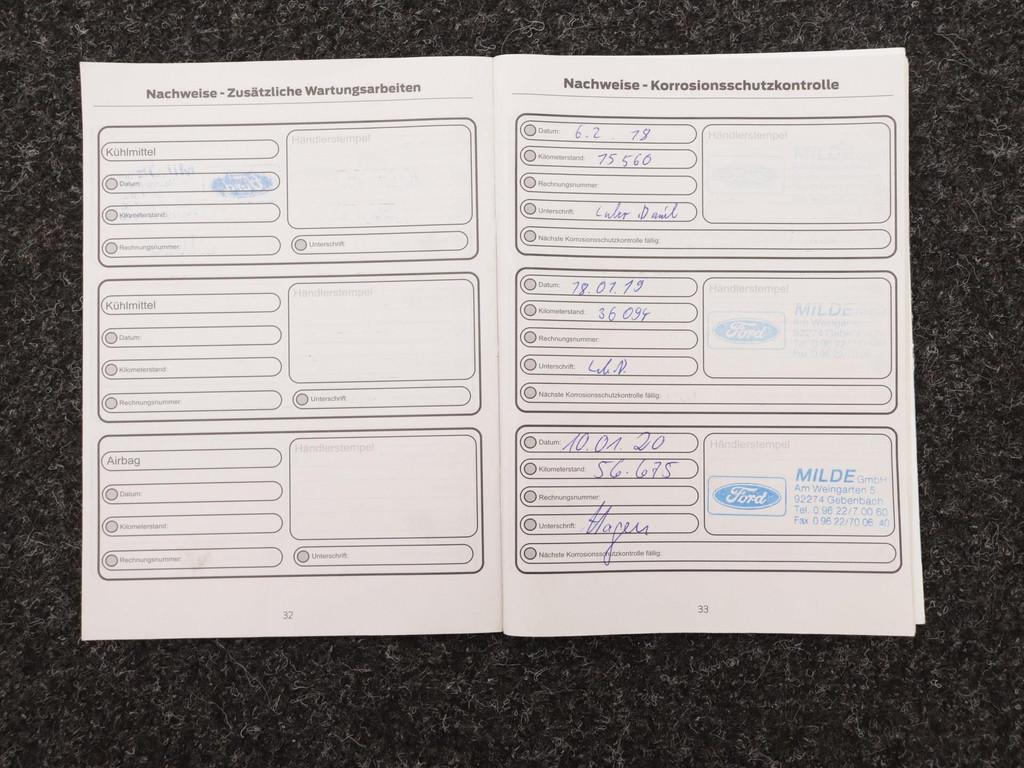 Nachweise - Zusätzliche Wartungsarbeiten
Kühlmittel
Händlerstempel
Datum:
Ford
Kilometerstand:
Rechnungsnummer:
Unterschrift:
Kühlmittel
Händlerstempel
Datum:
Kilometerstand:
Rechnungsnummer:
Unterschrift:
Airbag
Händlerstempel
Datum:
Kilometerstand:
Rechnungsnummer:
Unterschrift:
32
Nachweise - Korrosionsschutzkontrolle
Datum: 6.2. 18
Händlerstempel
Kilometerstand: 15 560
Ford MILDE
Rechnungsnummer:
Unterschrift:
Nächste Korrosionsschutzkontrolle fällig:
Datum: 18.01.19
Händlerstempel
Kilometerstand: 36 094
Ford
MILDE
Am Weingarten
92274 Gebenbach
Rechnungsnummer:
Unterschrift:
Nächste Korrosionsschutzkontrolle fällig:
Datum: 10.01.20
Händlerstempel
Kilometerstand: 56.675
Ford
MILDE GmbH
Am Weingarten 5
92274 Gebenbach
Tel. 0 96 22/7 00 60
Fax 0 96 22/70 06 40
Rechnungsnummer:
Unterschrift:
Nächste Korrosionsschutzkontrolle fällig:
33